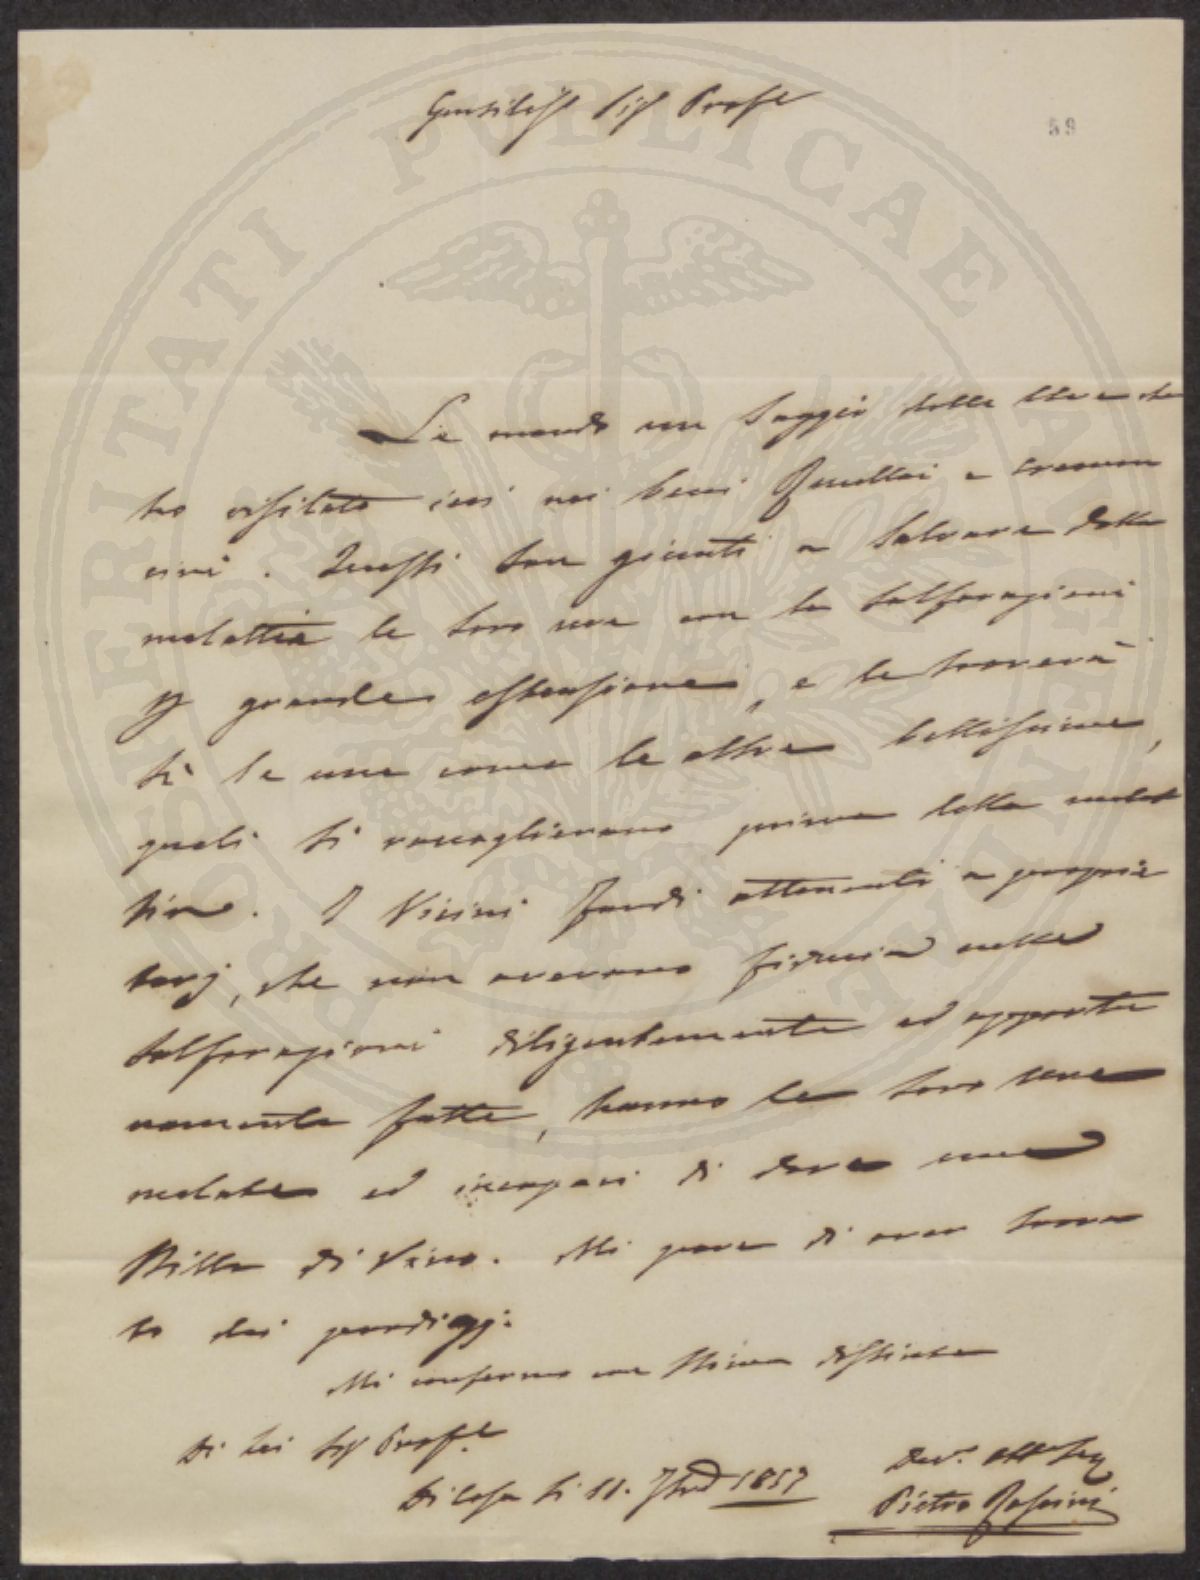 Gentiless.mo Sig.r Prof.e
59
Le mando un Saggio delle Uve che
ho visitato ieri nei beni Rucellai e
vini. Questi son giunti a Salvare dalla
malattia le loro uve con la solforazioni
grande estensione, e le troverà
sì le une come le altre bellissime,
quali si raccoglievano prima della malat
tia. I Vicini fondi attenenti a proprie
tarj, che non avevano fiducia nelle
Solforazioni diligentemente ed opportu
namente fatte, hanno le loro uve
malate ed incapaci di dare una
Stilla di Vino. Mi pare di aver trova
to dei prodigj.
Mi confermo con Stima distinta
Di Lei Sig.r Prof.e
Di Casa li 11. 7bre 1857
Dev.o Obb.o Ser
Pietro
PROSPERITATI PUBLICAE AUGENDAE